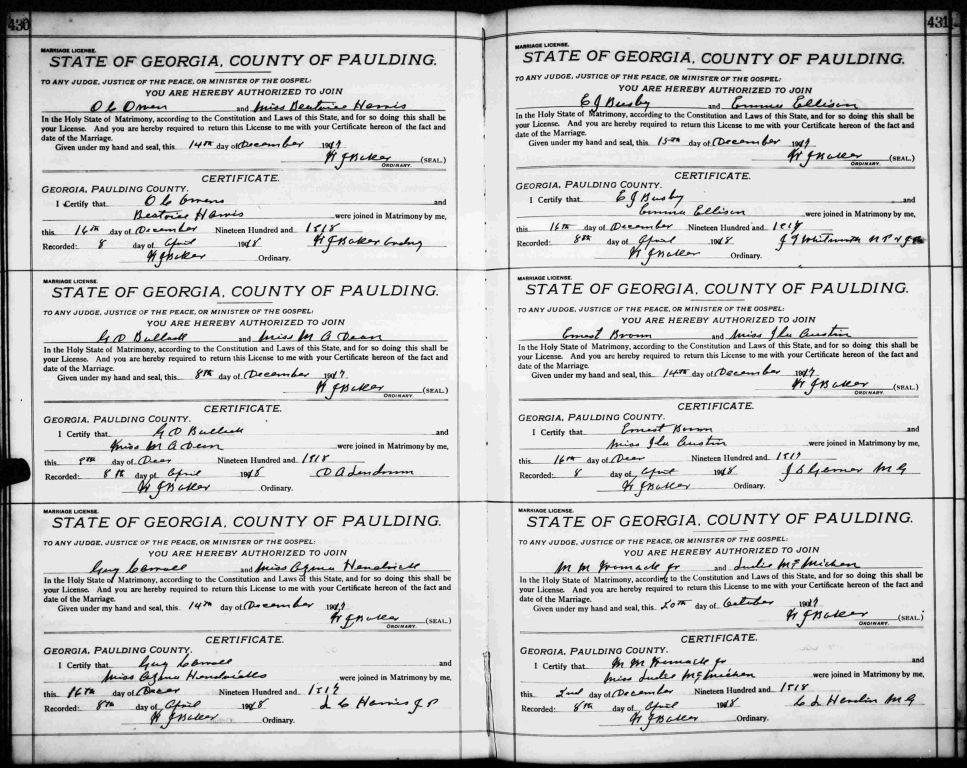 430
MARRIAGE LICENSE.
STATE OF GEORGIA, COUNTY OF PAULDING.
TO ANY JUDGE, JUSTICE OF THE PEACE, OR MINISTER OF THE GOSPEL:
YOU ARE HEREBY AUTHORIZED TO JOIN
O C Owen and Miss Beatrice Harris
In the Holy State of Matrimony, according to the Constitution and Laws of this State, and for so doing this shall be
your License. And you are hereby required to return this License to me with your Certificate hereon of the fact and
date of the Marriage.
Given under my hand and seal, this 14th day of December 1917
H J Baker (SEAL.)
ORDINARY.
CERTIFICATE.
GEORGIA, PAULDING COUNTY.
I Certify that O C Owens and
Beatrice Harris were joined in Matrimony by me,
this 16th day of December Nineteen Hundred and 1918
Recorded: 8 day of April 1918 H J Baker Ordny
H J Baker Ordinary.
MARRIAGE LICENSE.
STATE OF GEORGIA, COUNTY OF PAULDING.
TO ANY JUDGE, JUSTICE OF THE PEACE, OR MINISTER OF THE GOSPEL:
YOU ARE HEREBY AUTHORIZED TO JOIN
G D Bullock and Miss M A Dean
In the Holy State of Matrimony, according to the Constitution and Laws of this State, and for so doing this shall be
your License. And you are hereby required to return this License to me with your Certificate hereon of the fact and
date of the Marriage.
Given under my hand and seal, this 8th day of December 1917
H J Baker (SEAL.)
ORDINARY.
CERTIFICATE.
GEORGIA, PAULDING COUNTY.
I Certify that G D Bullock and
Miss M A Dean were joined in Matrimony by me,
this day of Decer Nineteen Hundred and 1918
Recorded: 8th day of April 1918 O A
H J Baker Ordinary.
MARRIAGE LICENSE.
STATE OF GEORGIA, COUNTY OF PAULDING.
TO ANY JUDGE, JUSTICE OF THE PEACE, OR MINISTER OF THE GOSPEL:
YOU ARE HEREBY AUTHORIZED TO JOIN
Guy Carroll and Miss Hendricks
In the Holy State of Matrimony, according to the Constitution and Laws of this State, and for so doing this shall be
your License. And you are hereby required to return this License to me with your Certificate hereon of the fact and
date of the Marriage.
Given under my hand and seal, this 14th day of December 1917
H J Baker (SEAL.)
ORDINARY.
CERTIFICATE.
GEORGIA, PAULDING COUNTY.
I Certify that Guy Carroll and
Miss Hendricks were joined in Matrimony by me,
this 16th day of Decer Nineteen Hundred and 1917
Recorded: 8th day of April 1918 L C Harris J P
H J Baker Ordinary.
431
MARRIAGE LICENSE.
STATE OF GEORGIA, COUNTY OF PAULDING.
TO ANY JUDGE, JUSTICE OF THE PEACE, OR MINISTER OF THE GOSPEL:
YOU ARE HEREBY AUTHORIZED TO JOIN
E J Busby and Emma Ellison
In the Holy State of Matrimony, according to the Constitution and Laws of this State, and for so doing this shall be
your License. And you are hereby required to return this License to me with your Certificate hereon of the fact and
date of the Marriage.
Given under my hand and seal, this 15th day of December 1917
H J Baker (SEAL.)
ORDINARY.
CERTIFICATE.
GEORGIA, PAULDING COUNTY.
I Certify that E J Busby and
Emma Ellison were joined in Matrimony by me,
this 16th day of December Nineteen Hundred and 1918
Recorded: 8th day of April 1918 J T Whitworth N P &
H J Baker Ordinary.
MARRIAGE LICENSE.
STATE OF GEORGIA, COUNTY OF PAULDING.
TO ANY JUDGE, JUSTICE OF THE PEACE, OR MINISTER OF THE GOSPEL:
YOU ARE HEREBY AUTHORIZED TO JOIN
Ernest Brown and Miss Ila Austin
In the Holy State of Matrimony, according to the Constitution and Laws of this State, and for so doing this shall be
your License. And you are hereby required to return this License to me with your Certificate hereon of the fact and
date of the Marriage.
Given under my hand and seal, this 14th day of December 1917
H J Baker (SEAL.)
ORDINARY.
CERTIFICATE.
GEORGIA, PAULDING COUNTY.
I Certify that Ernest Brown and
Miss Ila Austin were joined in Matrimony by me,
this 16th day of Decer Nineteen Hundred and 1917
Recorded: 8 day of April 1918 M G
H J Baker Ordinary.
MARRIAGE LICENSE.
STATE OF GEORGIA, COUNTY OF PAULDING.
TO ANY JUDGE, JUSTICE OF THE PEACE, OR MINISTER OF THE GOSPEL:
YOU ARE HEREBY AUTHORIZED TO JOIN
M M Womack Jr and McMichen
In the Holy State of Matrimony, according to the Constitution and Laws of this State, and for so doing this shall be
your License. And you are hereby required to return this License to me with your Certificate hereon of the fact and
date of the Marriage.
Given under my hand and seal, this 20th day of October 1917
H J Baker (SEAL.)
ORDINARY.
CERTIFICATE.
GEORGIA, PAULDING COUNTY.
I Certify that M M Womack Jr and
Miss McMichen were joined in Matrimony by me,
this 2nd day of December Nineteen Hundred and 1918
Recorded: 8th day of April 1918 M G
H J Baker Ordinary.